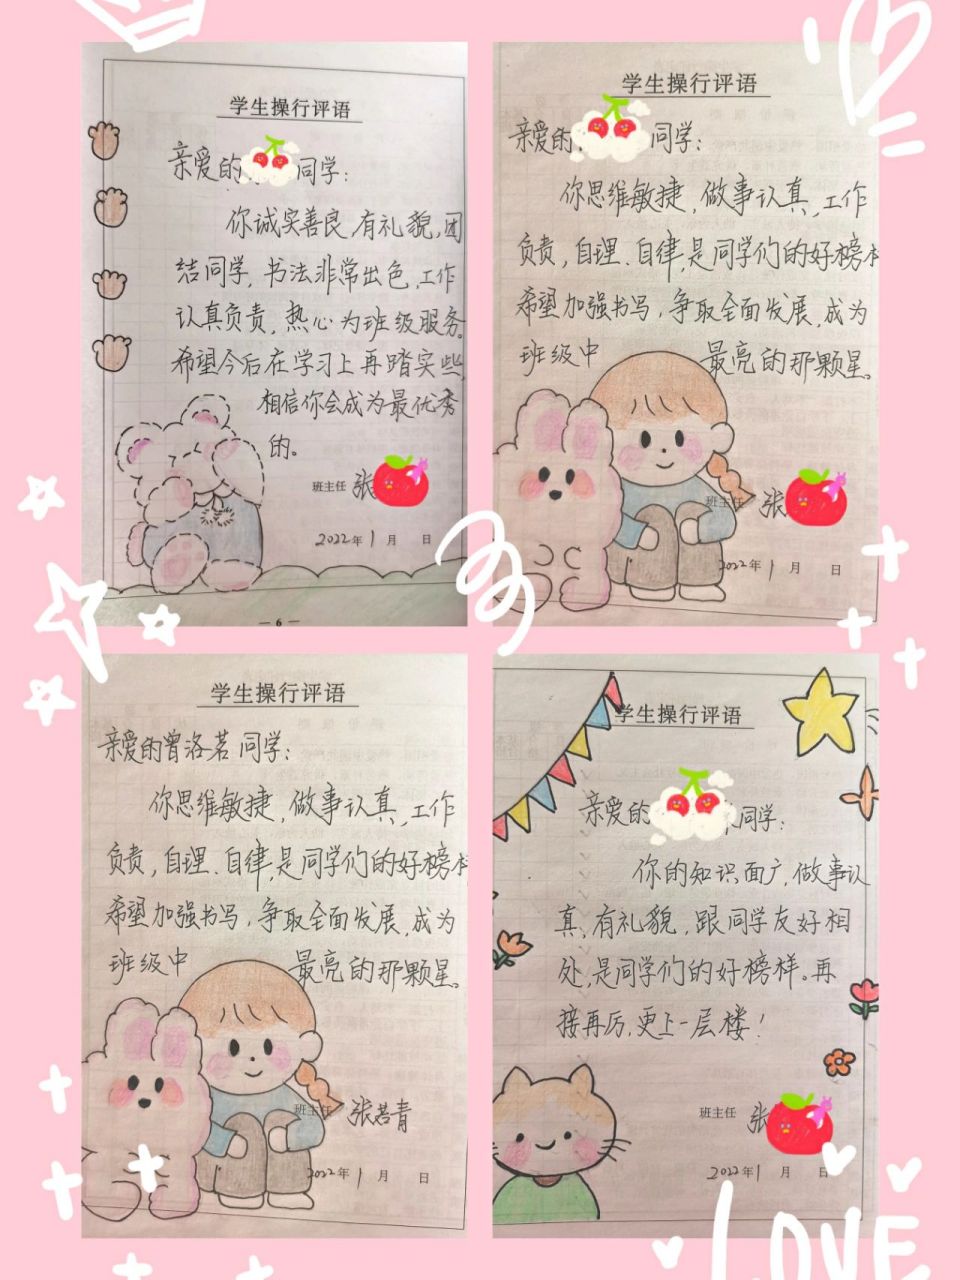 学生操行评语
亲爱的
同学：
你诚实善良,有礼貌,团
结同学,书法非常出色,工作
认真负责,热心为班级服务。
希望今后在学习上再踏实些,
相信你会成为最优秀
的。
班主任 张
2022年1月 日
— 6 —
学生操行评语
亲爱的
同学：
你思维敏捷,做事认真,工作
负责,自理、自律,是同学们的好榜样
希望加强书写,争取全面发展,成为
班级中 最亮的那颗星。
班主任 张
2022年1月 日
学生操行评语
亲爱的曾洛茗同学：
你思维敏捷,做事认真,工作
负责,自理、自律,是同学们的好榜样
希望加强书写,争取全面发展,成为
班级中 最亮的那颗星。
班主任 张若青
2022年1月 日
学生操行评语
亲爱的
同学：
你的知识面广,做事认
真,有礼貌,跟同学友好相
处,是同学们的好榜样。再
接再厉,更上一层楼！
班主任 张
2022年1月 日
LOVE